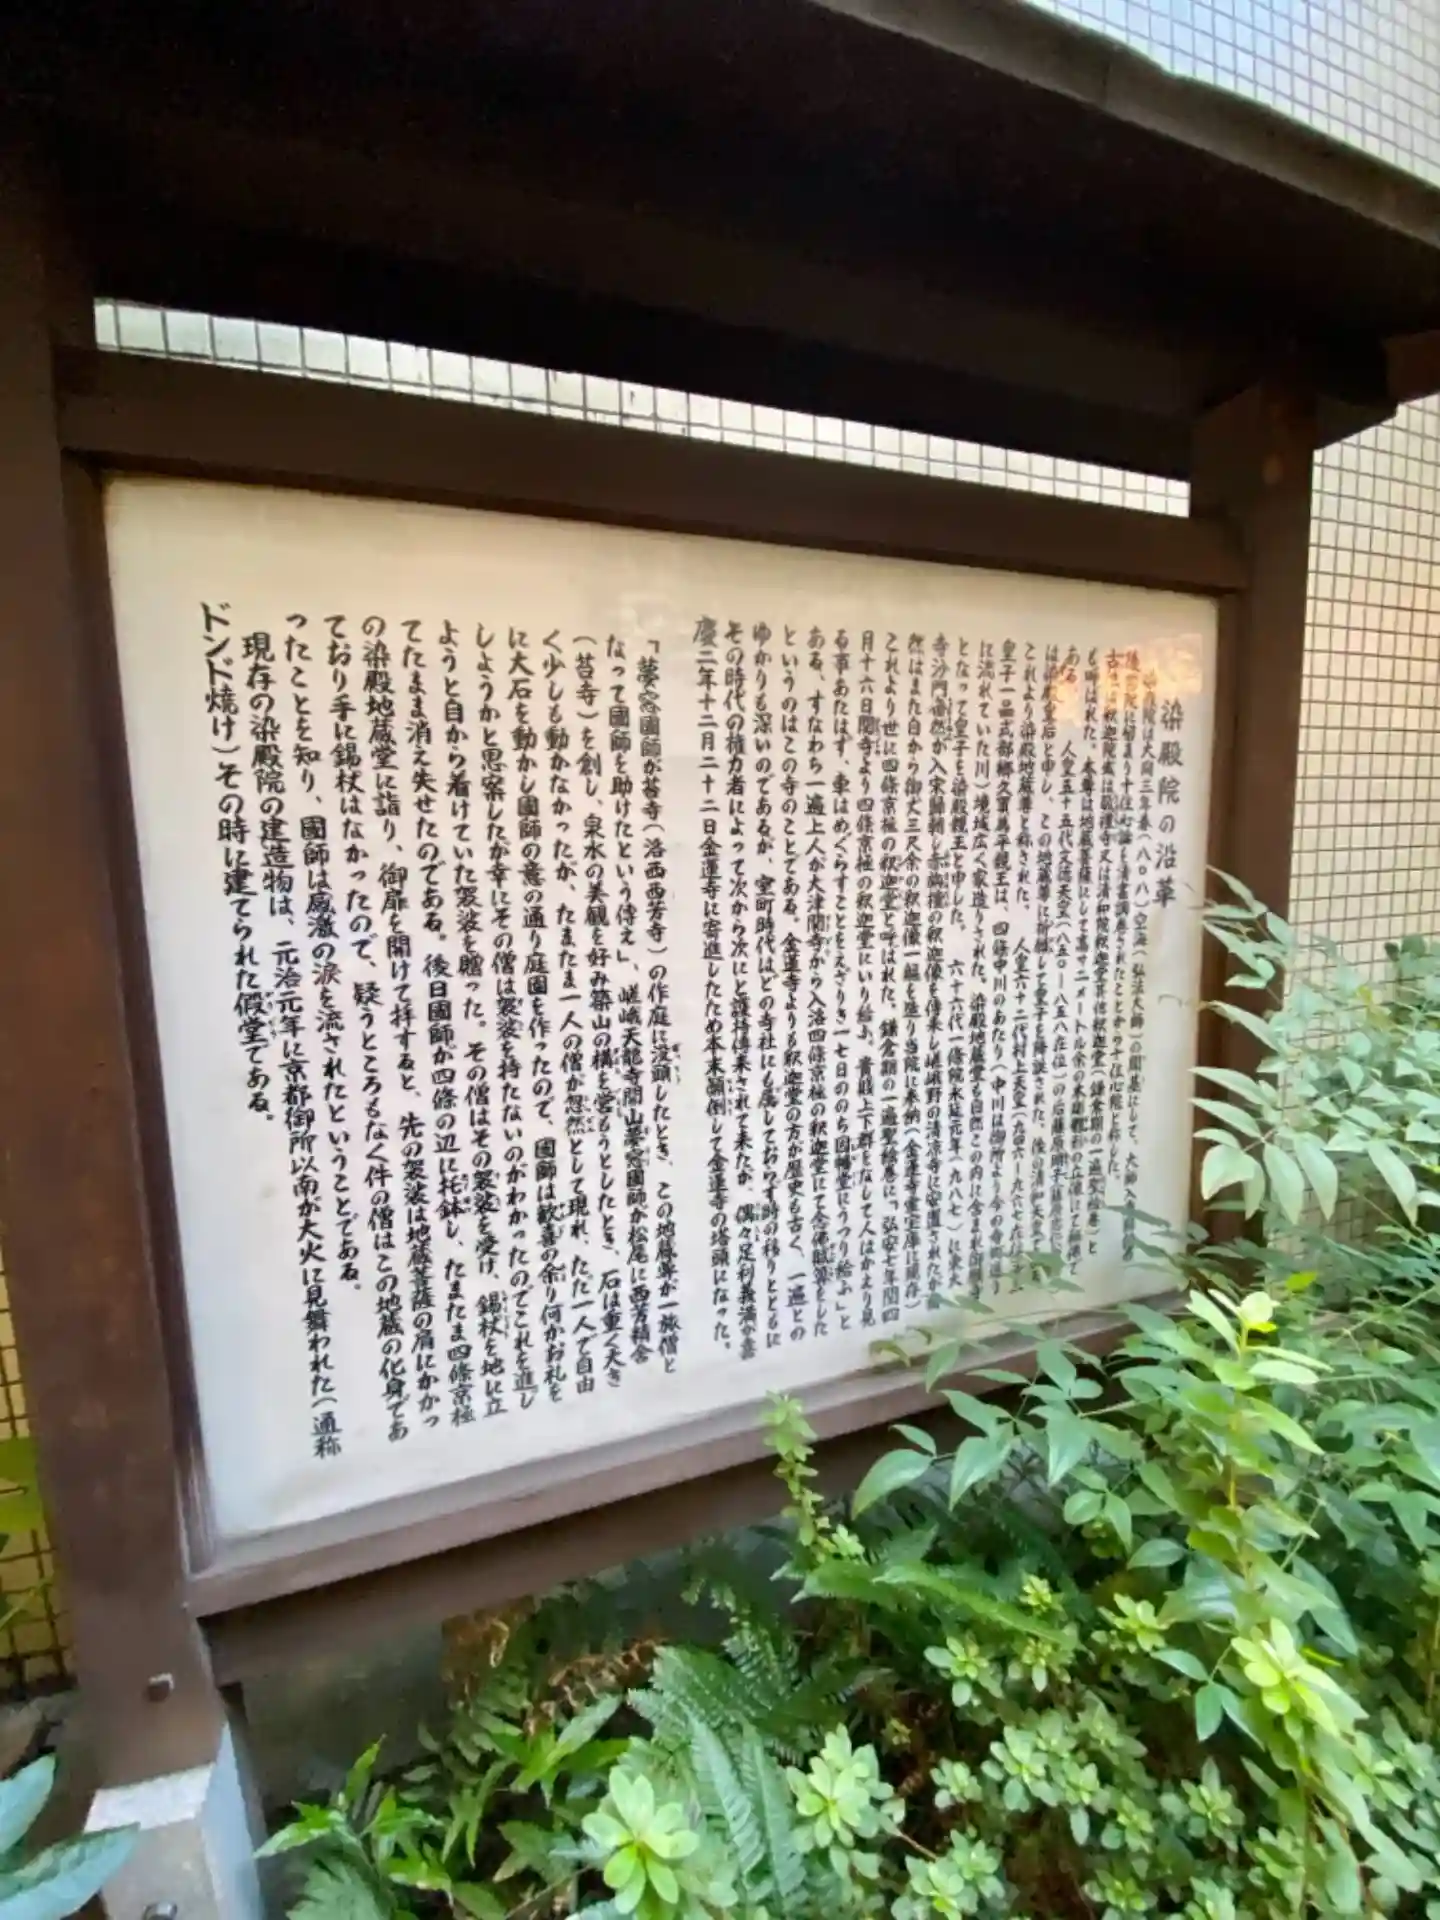 染殿院の沿革
院は大同三年春(八〇八)空海(弘法大師)の開基にして、大師入
院に留まり十住心論を清書調巻されたことから十住心院と称した。
釈迦院或は敬禮寺又は清和院釈迦堂
も呼ばれた。本尊は地蔵菩薩にして高サ二メートル余の木彫裸形の立像にて秘佛で
ある 人皇五十五代文徳天皇(八五〇-八五八在位)の后藤原明子
は染殿皇后と申し、この地蔵尊に祈願して皇子を降誕された、後の清和天皇
これより染殿地蔵尊と称された。 人皇六十二代村上天皇(九四六-九六七在位)
皇子一品式部卿久寶萬平親王は、四條中川のあたり(中川は御所より今の寺町通り
に流れていた川)境域広く家造りされた。染殿地蔵堂も自然この内に含まれ
となって皇子を染殿親王と申した。 六十六代一條院永延元年(九八七)に東大
寺沙門奝然が入宋歸朝し赤栴檀の釈迦像を傳来し嵯峨野の清凉寺に安置されたが奝
然はまた自から御丈三尺余の釈迦像一躯を造り当院に奉納(金蓮寺霊宝庫に現存)
これより世に四條京極の釈迦堂と呼ばれた。鎌倉期の一遍聖絵巻に「弘安七年閏四
月十六日関寺より四條京極の釈迦堂にいり給ふ。貴賎上下群をなして人はかえり見
る事あたはず、車はめぐらすことをえざりき一七日ののち因幡堂にうつり給ふ」と
ある、すなわち一遍上人が大津関寺から入洛四條京極の釈迦堂にて念佛賦算をした
というのはこの寺のことである。金蓮寺よりも釈迦堂の方が歴史も古く、一遍との
ゆかりも深いのであるが、室町時代はどの寺社にも属しておらず時の移りとともに
その時代の権力者によって次から次にと護持傳来されて来たが、偶々足利義満が嘉
慶二年十二月二十二日金蓮寺に寄進したため本末顛倒して金蓮寺の塔頭になった。
「夢窓國師が苔寺(洛西西芳寺)の作庭に没頭したとき、この地蔵尊が一旅僧と
なって國師を助けたという傳え」、嵯峨天龍寺開山夢窓國師が松尾に西芳精舎
(苔寺)を創し、泉水の美観を好み築山の構を営もうとしたとき、石は重く大き
く少しも動かなかったが、たまたま一人の僧が忽然として現れ、ただ一人で自由
に大石を動かし國師の意の通り庭園を作ったので、國師は歓喜の余り何かお礼を
しようかと思案したが幸にその僧は袈裟を持たないのがわかったのでこれを進し
ようと自から着けていた袈裟を贈った。その僧はその袈裟を受け、錫杖を地に立
てたまま消え失せたのである。後日國師が四條の辺に托鉢し、たまたま四條京極
の染殿地蔵堂に詣り、御扉を開けて拝すると、先の袈裟は地蔵菩薩の肩にかかっ
ており手に錫杖はなかったので、疑うところもなく件の僧はこの地蔵の化身であ
ったことを知り、國師は感激の涙を流されたということである。
現存の染殿院の建造物は、元治元年に京都御所以南が大火に見舞われた(通称
ドンド焼け)その時に建てられた假堂である。